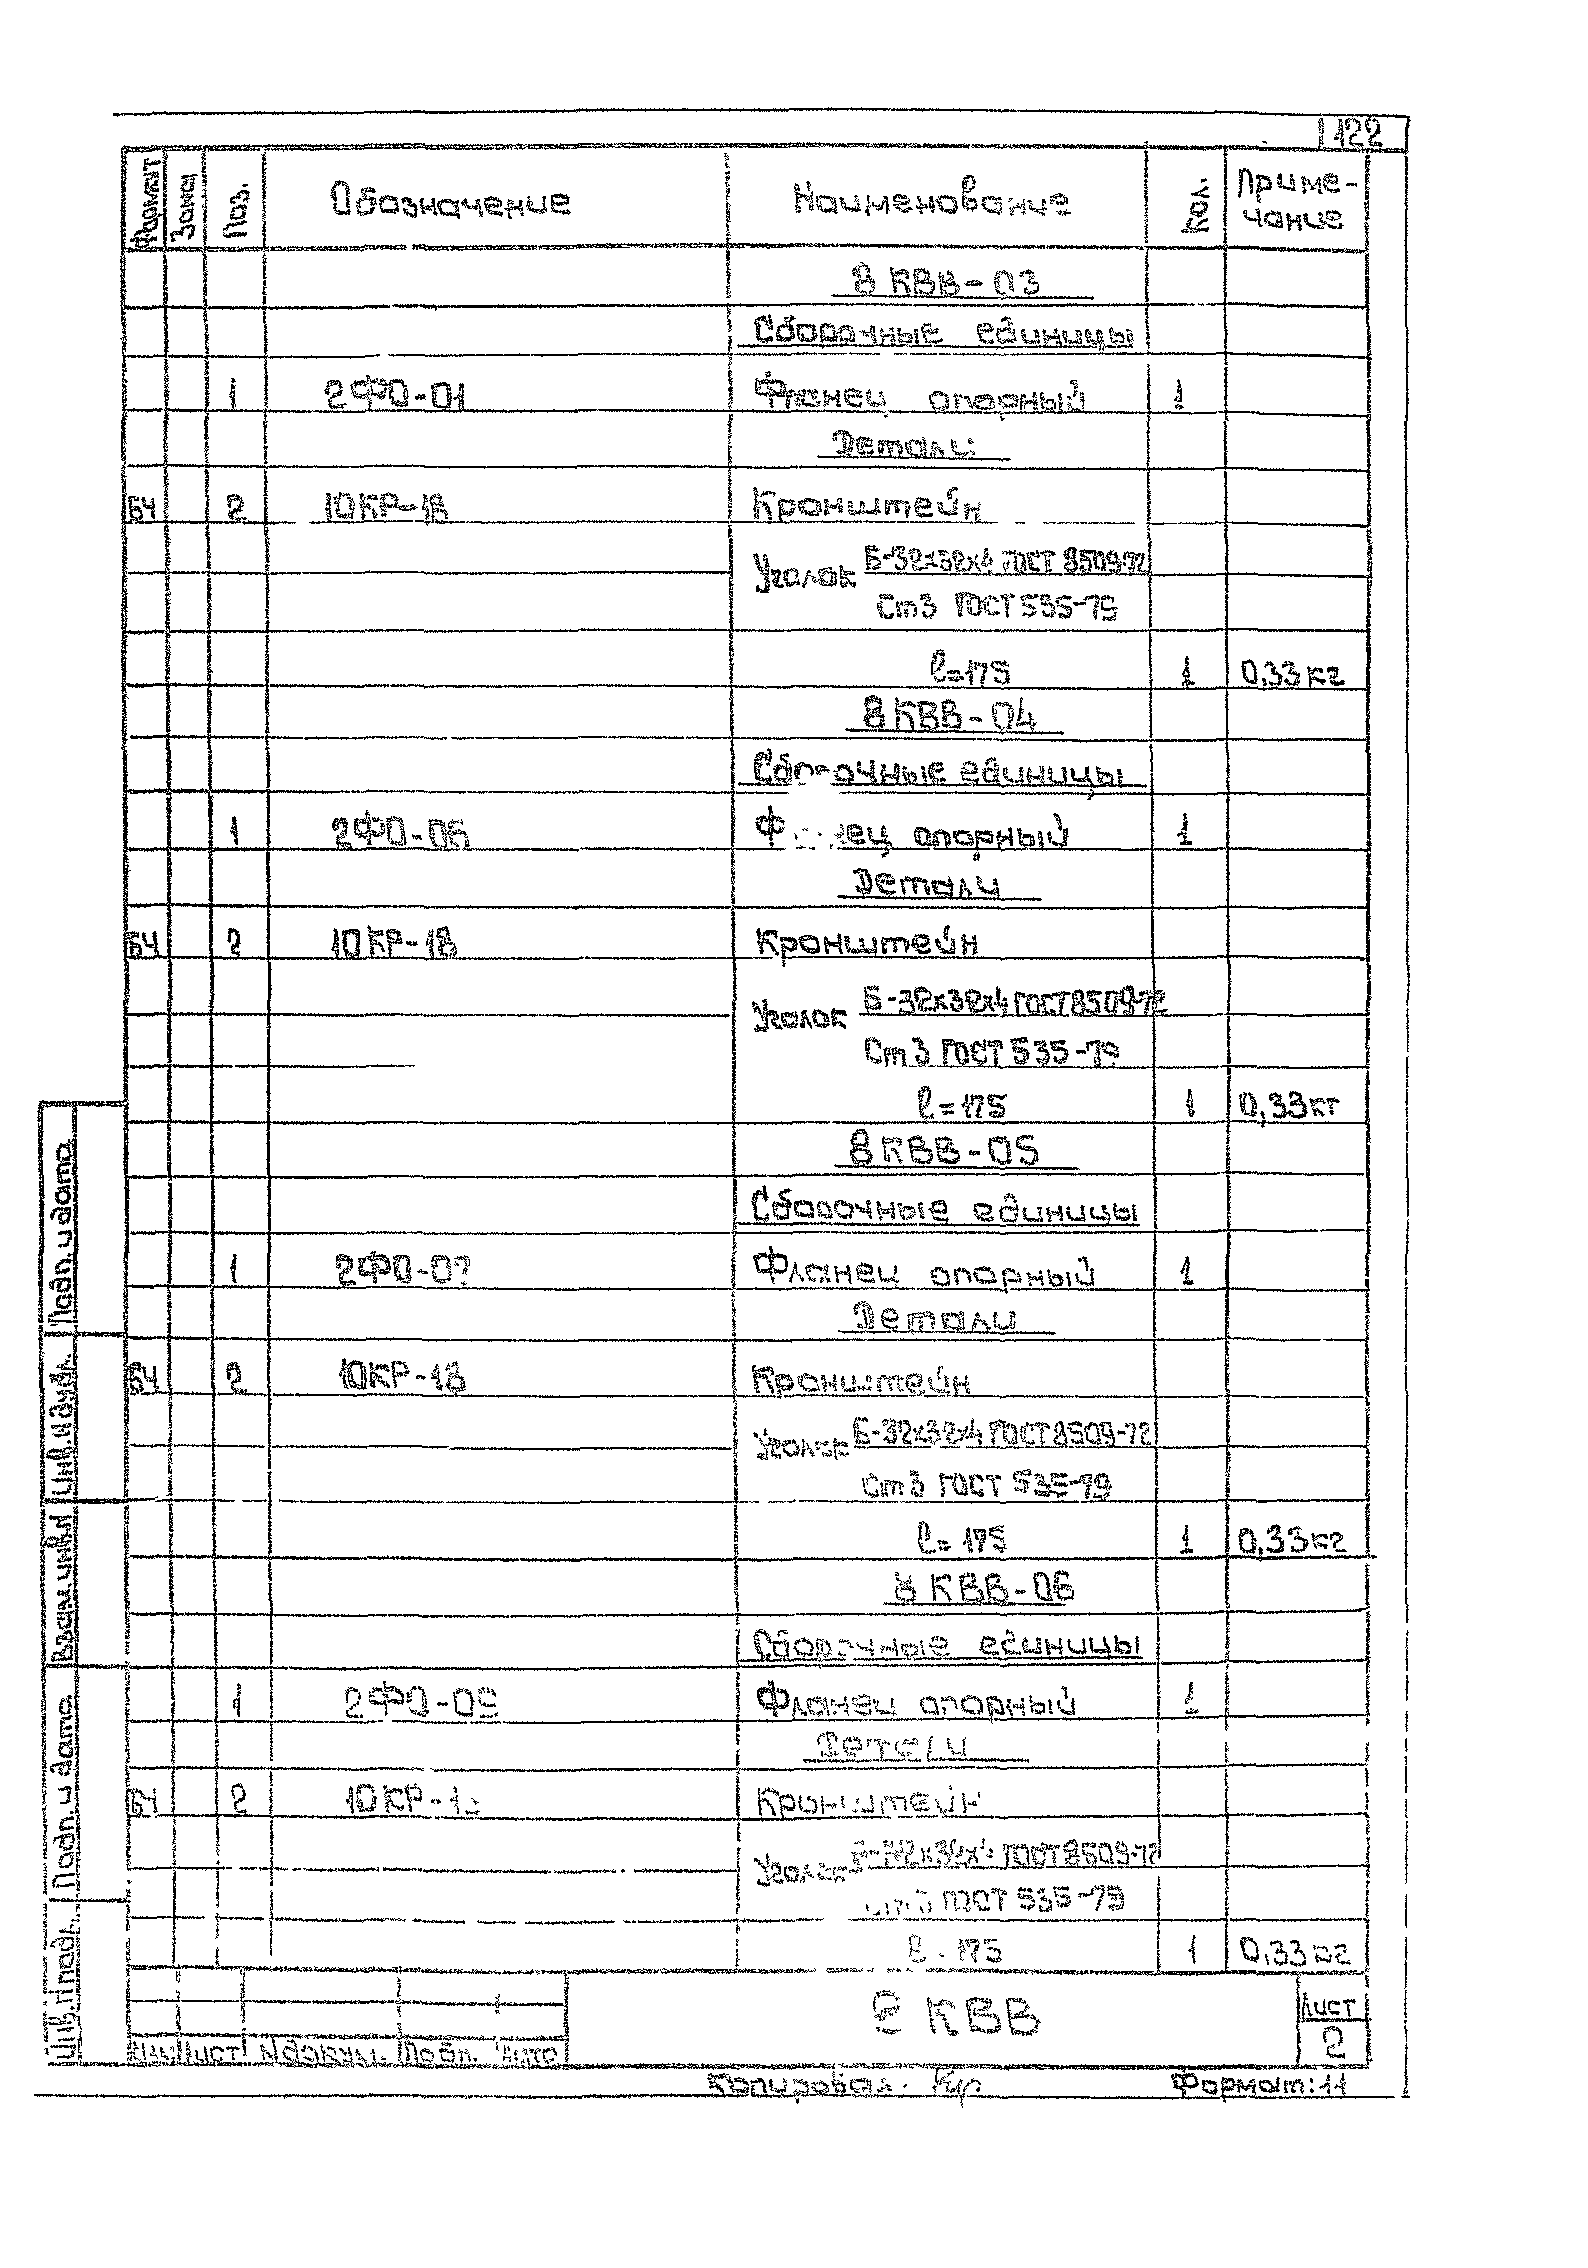 122
Формат Зона Поз. Обозначение Наименование Кол. Приме-
чание
8 КВВ-03
Сборочные единицы
1 2ФО-01 Фланец опорный 1
Детали:
БЧ 2 10КР-18 Кронштейн
Уголок Б-32х32х4 ГОСТ 8509-72
Ст3 ГОСТ 535-79
ℓ=175 1 0,33кг
8 КВВ-04
Сборочные единицы
1 2ФО-06 Фланец опорный 1
Детали
БЧ 2 10КР-18 Кронштейн
Уголок Б-32х32х4 ГОСТ 8509-72
Ст3 ГОСТ 535-79
ℓ=175 1 0,33кг
8 КВВ-05
Сборочные единицы
1 Фланец опорный 1
Детали
БЧ 2 10КР-18 Кронштейн
Уголок Б-32х32х4 ГОСТ 8509-72
Ст3 ГОСТ 535-79
ℓ=175 1 0,33кг
8 КВВ-06
Сборочные единицы
1 Фланец опорный 1
Детали
БЧ 2 Кронштейн
Уголок ГОСТ 8509-72
ГОСТ 535-79
ℓ 175 1 0,33кг
КВВ
Лист
2
Изм. Лист №докум. Подп. Дата
Копировал: Формат: 11
Подп. и дата
Инв.№дубл.
Взам.инв.№
Подп. и дата
Инв.№подл.